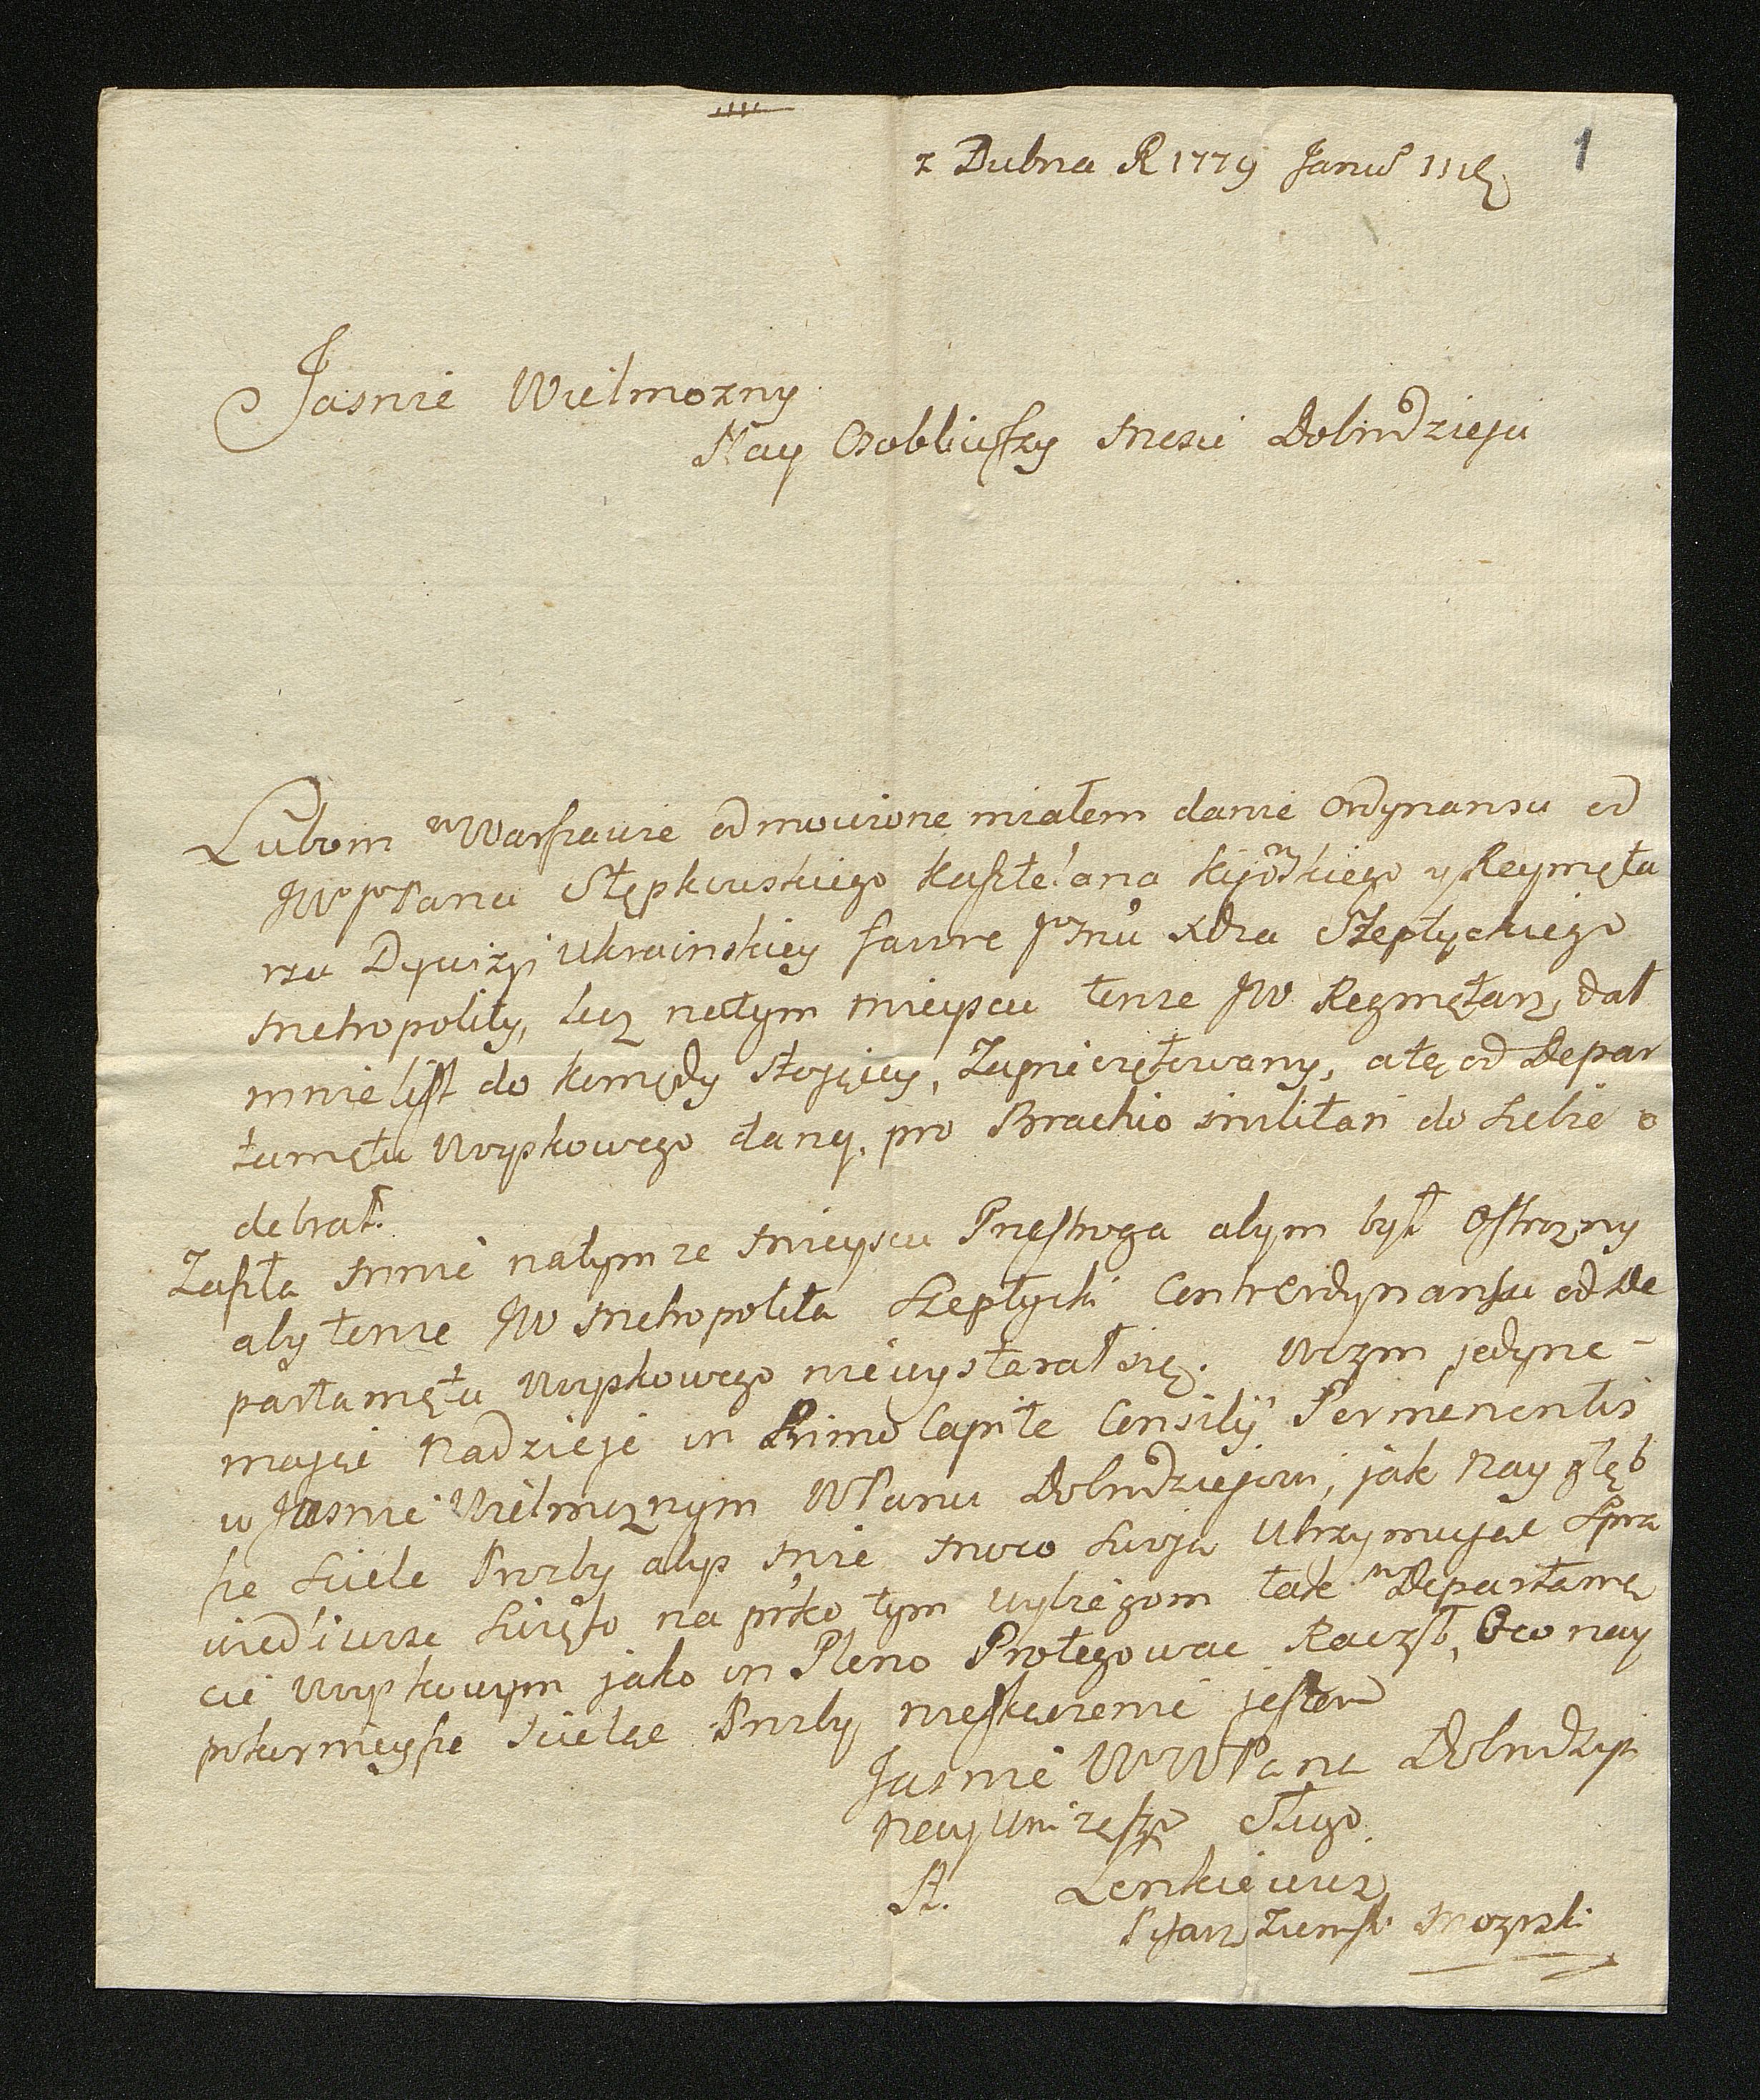 1
z Dubna R 1779 Janu
Jasnie Wielmozny
Nay Osobliwszy Mosci Dobrodzieju
Lubom w Warszawie odmowione miałem danie Ordynansu od
JW Jo Pana Stępkowskiego Kasztelana Kijowskiego y Reymęta
rza Dywizyi Ukrainskiey favore Xdza Szeptyckiego
Metropolity, lecz na tym mieyscu tenze JW Regmętarz, dał
mnie list do komędy stojącey, Zapieczętowany, a tę od Depar
tamętu Woyskowego daną, pro Brachio militari do siebie o
debrał.
Zaszła mnie na tymze mieyscu Przestroga abym był ostrozny
aby tenze JW Metropolita Szeptycki Contrordynansu od De
partamętu Woyskowego nie wystarał się. W czym jedyne
mając Nadzieje in Primo Capite Consilij Permenentis
w Jasnie Wielmoznym WPanu Dobrodziejowi, jak Nay głęb
sze sciele Prozby abys mie moco swoja utrzymujac spra
wiedliwosc swięto na prko tym wybiegom tak w Departamę
cie Woyskowym jako in Pleno Protegowac Raczył, O co nay
pokornieysze scieląc Prozby nieskączenie jestem
Jasnie W WPana Dobrodzieja
Nayunizęszy Sługa
St. Lenkiewicz
Pisarz Ziemski Mozyrski